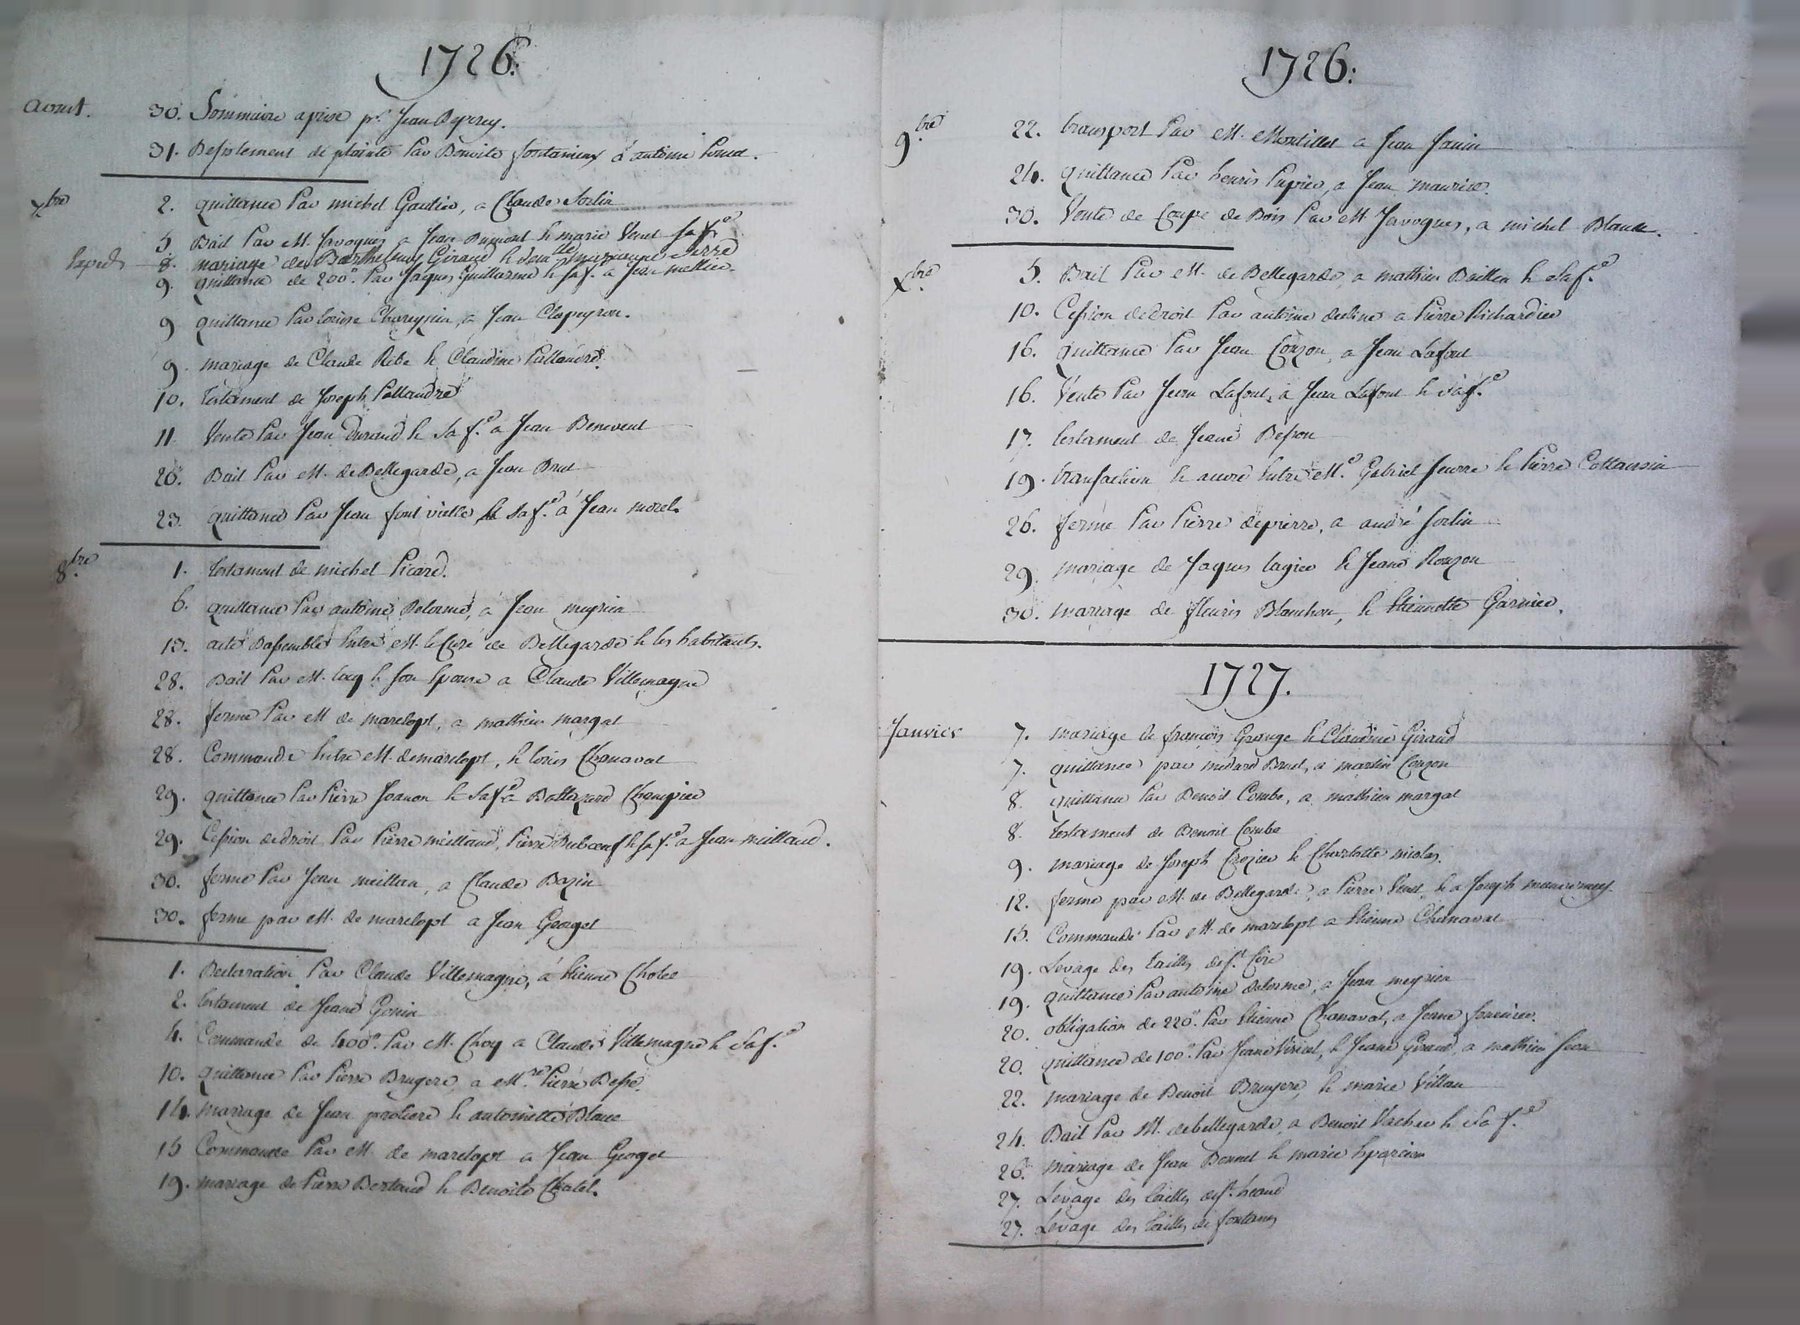 1726.
aoust. 30. Sommaire aprise pr. Jean Deperey.
31. Desistement de plainte par Benoite fontanieux a antoine
7bre 2. quittance par michel Gautier, a Claude Sorlin
5 Bail par M. Javogues a Jean Dumont & marie Venet sa fe
8. mariage de Barthelemy Giraud & marianne Serre
9. quittance de 200lt. par Jaques Guillaume & sa f. a Jean mellier
9 quittance par louise Chareyzieu, a Jean Clapeyron.
9. mariage de Claude Ribe & Claudine Pallandre.
10. testament de Joseph Pallandre
11. Vente par Jean Durand & sa f.e a Jean Benevent
20. Bail par M. de Bellegarde, a Jean Brut
23. quittance par Jean font vielle & sa f.e a Jean morel.
8bre 1. testament de michel Picard.
6. quittance par antoine Delorme, a Jean meyrieu
15. acte Dassemblée Entre M. le Cure de Bellegarde & les habitants.
28. Bail par M. & son Epouse a Claude Villemagne
28. ferme par M de marclopt, a mathieu margat
28. Commande Entre M. de marclopt, & Chanavat
29. quittance par Pierre Joanon & sa f.e a Baltazard Champier
29. Cession de droit par Pierre meilland, Pierre Duboeuf & sa f.e a Jean meilland.
30. ferme par Jean meilland, a Claude Bazin
30. ferme par M. de marclopt a Jean Georget
1. Declaration par Claude Villemagne, a Etienne
2. testament de Jeane Gonin
4. Commande de 400lt. par M. Choy a Claude Villemagne & sa f.e
10. quittance par Pierre Brugere a M.re Pierre Besse
14. mariage de Jean & antoinette Blanc
15 Commande par M. de marclopt a Jean Georget
19. mariage de Pierre Bertaud & Benoite Chatel.
1726:
9.bre 22. transport par M. Montillet a Jean Janin
24. quittance par henris Papier, a Jean maurice.
30. Vente de Coupe de Bois par M. Javogues, a michel Blanc.
X.bre 5. Bail par M. de Bellegarde, a mathieu & sa f.e
10. Cession de droit par antoine a Pierre Richardier
16. quittance par Jean Couzon, a Jean Lafont
16. Vente par Jean Lafont, a Jean Lafont & sa f.e
17. testament de Jeane Besson
19. transaction & accord Entre M.e Gabriel & Pierre Cottancin
26. ferme par Pierre depierre, a andré Sorlin
29. mariage de Jaques lagier & Jeane Rouzon
30. mariage de fleuris Blanchon, & Etiennette Garnier.
1727.
Janvier 7. mariage de françois Grange & Claudine Giraud
7. quittance par medard Brut, a martin Couzon
8. quittance par Benoit Combe, a mathieu margat
8. testament de Benoit Combe
9. mariage de Joseph Crozier & Charlotte nicolas.
12. ferme par M. de Bellegarde, a Pierre & a Joseph
15. Commande par M. de marclopt a Etienne Chanavat
19. Levage des tailles de St. Cire
19. quittance par antoine delorme, a Jean meyrieu
20. obligation de 220lt. par Etienne Chanavat, a Jeane
20. quittance de 100lt. par Jeane & Jeane Giraud, a mathieu
22. mariage de Benoit Bruyere, & marie Villan
24. Bail par M. de bellegarde a Benoit Vacher & sa f.e
26. mariage de Jean Bonnet & marie
27. Levage des tailles de St. heand
27. Levage des tailles de fontanes